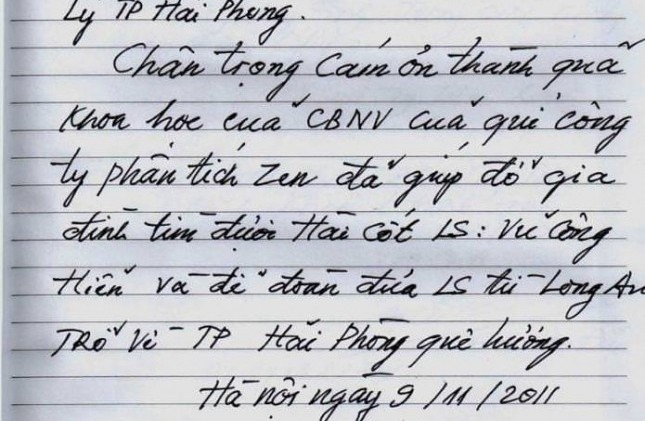 Lý TP Hải Phòng.
Chân trọng cám ơn thành quả
khoa học của CBNV của quí công
ty phân tích Zen đã giúp đỡ gia
đình tìm được Hài cốt LS: Vũ Công
Hiển và để đoàn đưa LS từ Long An
TRở về TP Hải Phòng quê hương.
Hà nội ngày 9/11/2011